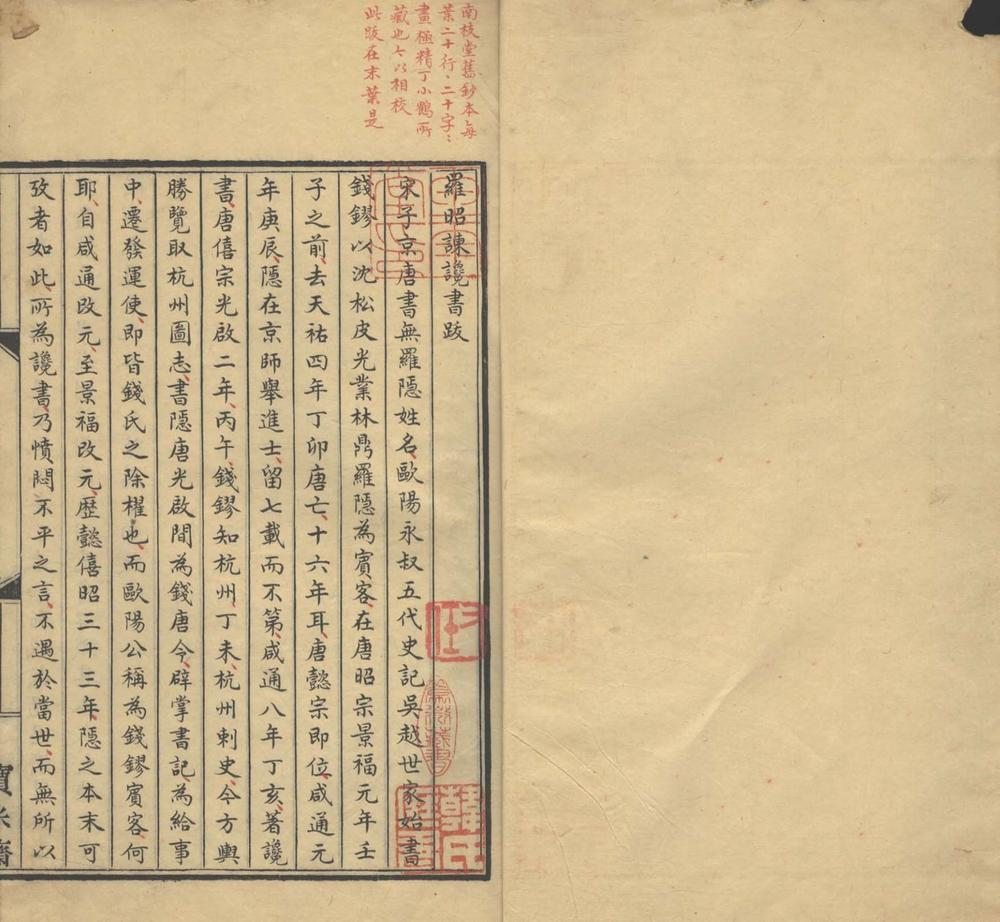 南枝堂舊鈔本每
葉二十行、二十字、
畫極精丁小鶴所
藏也今以相校
此跋在末葉是
羅昭諫讒書跋
宋子京唐書無羅隱姓名歐陽永叔五代史記吳越世家始書
錢鏐以沈松皮光業林鼎羅隱為賓客在唐昭宗景福元年壬
子之前去天祐四年丁卯唐亡十六年耳唐懿宗即位咸通元
年庚辰隱在京師舉進士留七載而不第咸通八年丁亥著讒
書唐僖宗光啟二年丙午錢鏐知杭州丁未杭州刺史今方輿
勝覽取杭州圖志書隱唐光啟間為錢唐令辟掌書記為給事
中遷發運使即皆錢氏之除櫂也而歐陽公稱為錢鏐賓客何
耶自咸通改元至景福改元歷懿僖昭三十三年隱之本末可
攷者如此所為讒書乃憤悶不平之言不遇於當世而無所以
韓氏
藏書